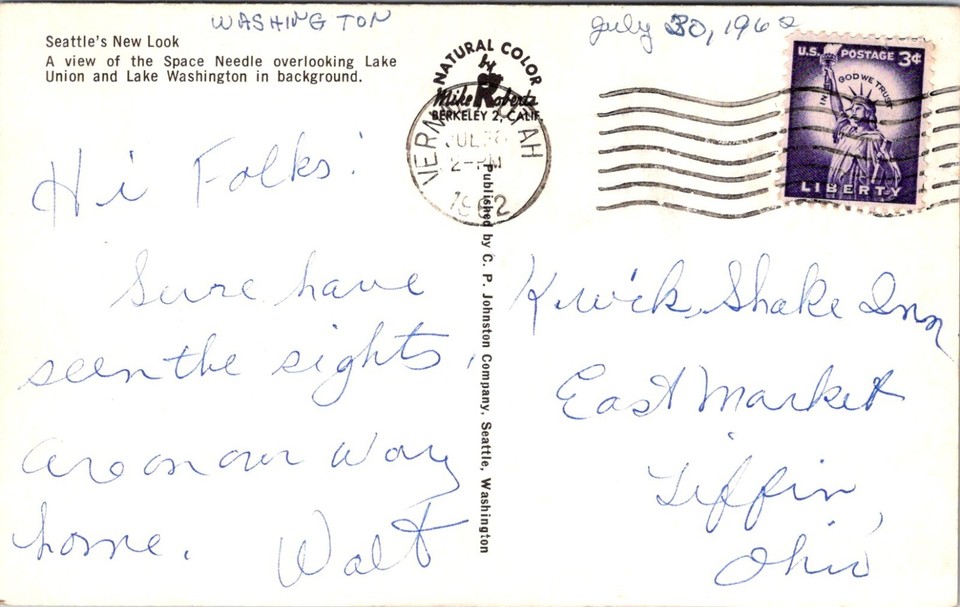 WASHINGTON
July 30, 1962
Seattle's New Look
A view of the Space Needle overlooking Lake
Union and Lake Washington in background.
NATURAL COLOR
by
Mike Roberts
BERKELEY 2, CALIF.
UTAH
JUL 30
2-PM
1962
U.S. POSTAGE 3¢
IN GOD WE TRUST
LIBERTY
Hi Folks!
Sure have
seen the sights,
are on our way
home.
Walt
Published by C. P. Johnston Company, Seattle, Washington
Kwick Shake Inn
East Market
Tiffin,
Ohio